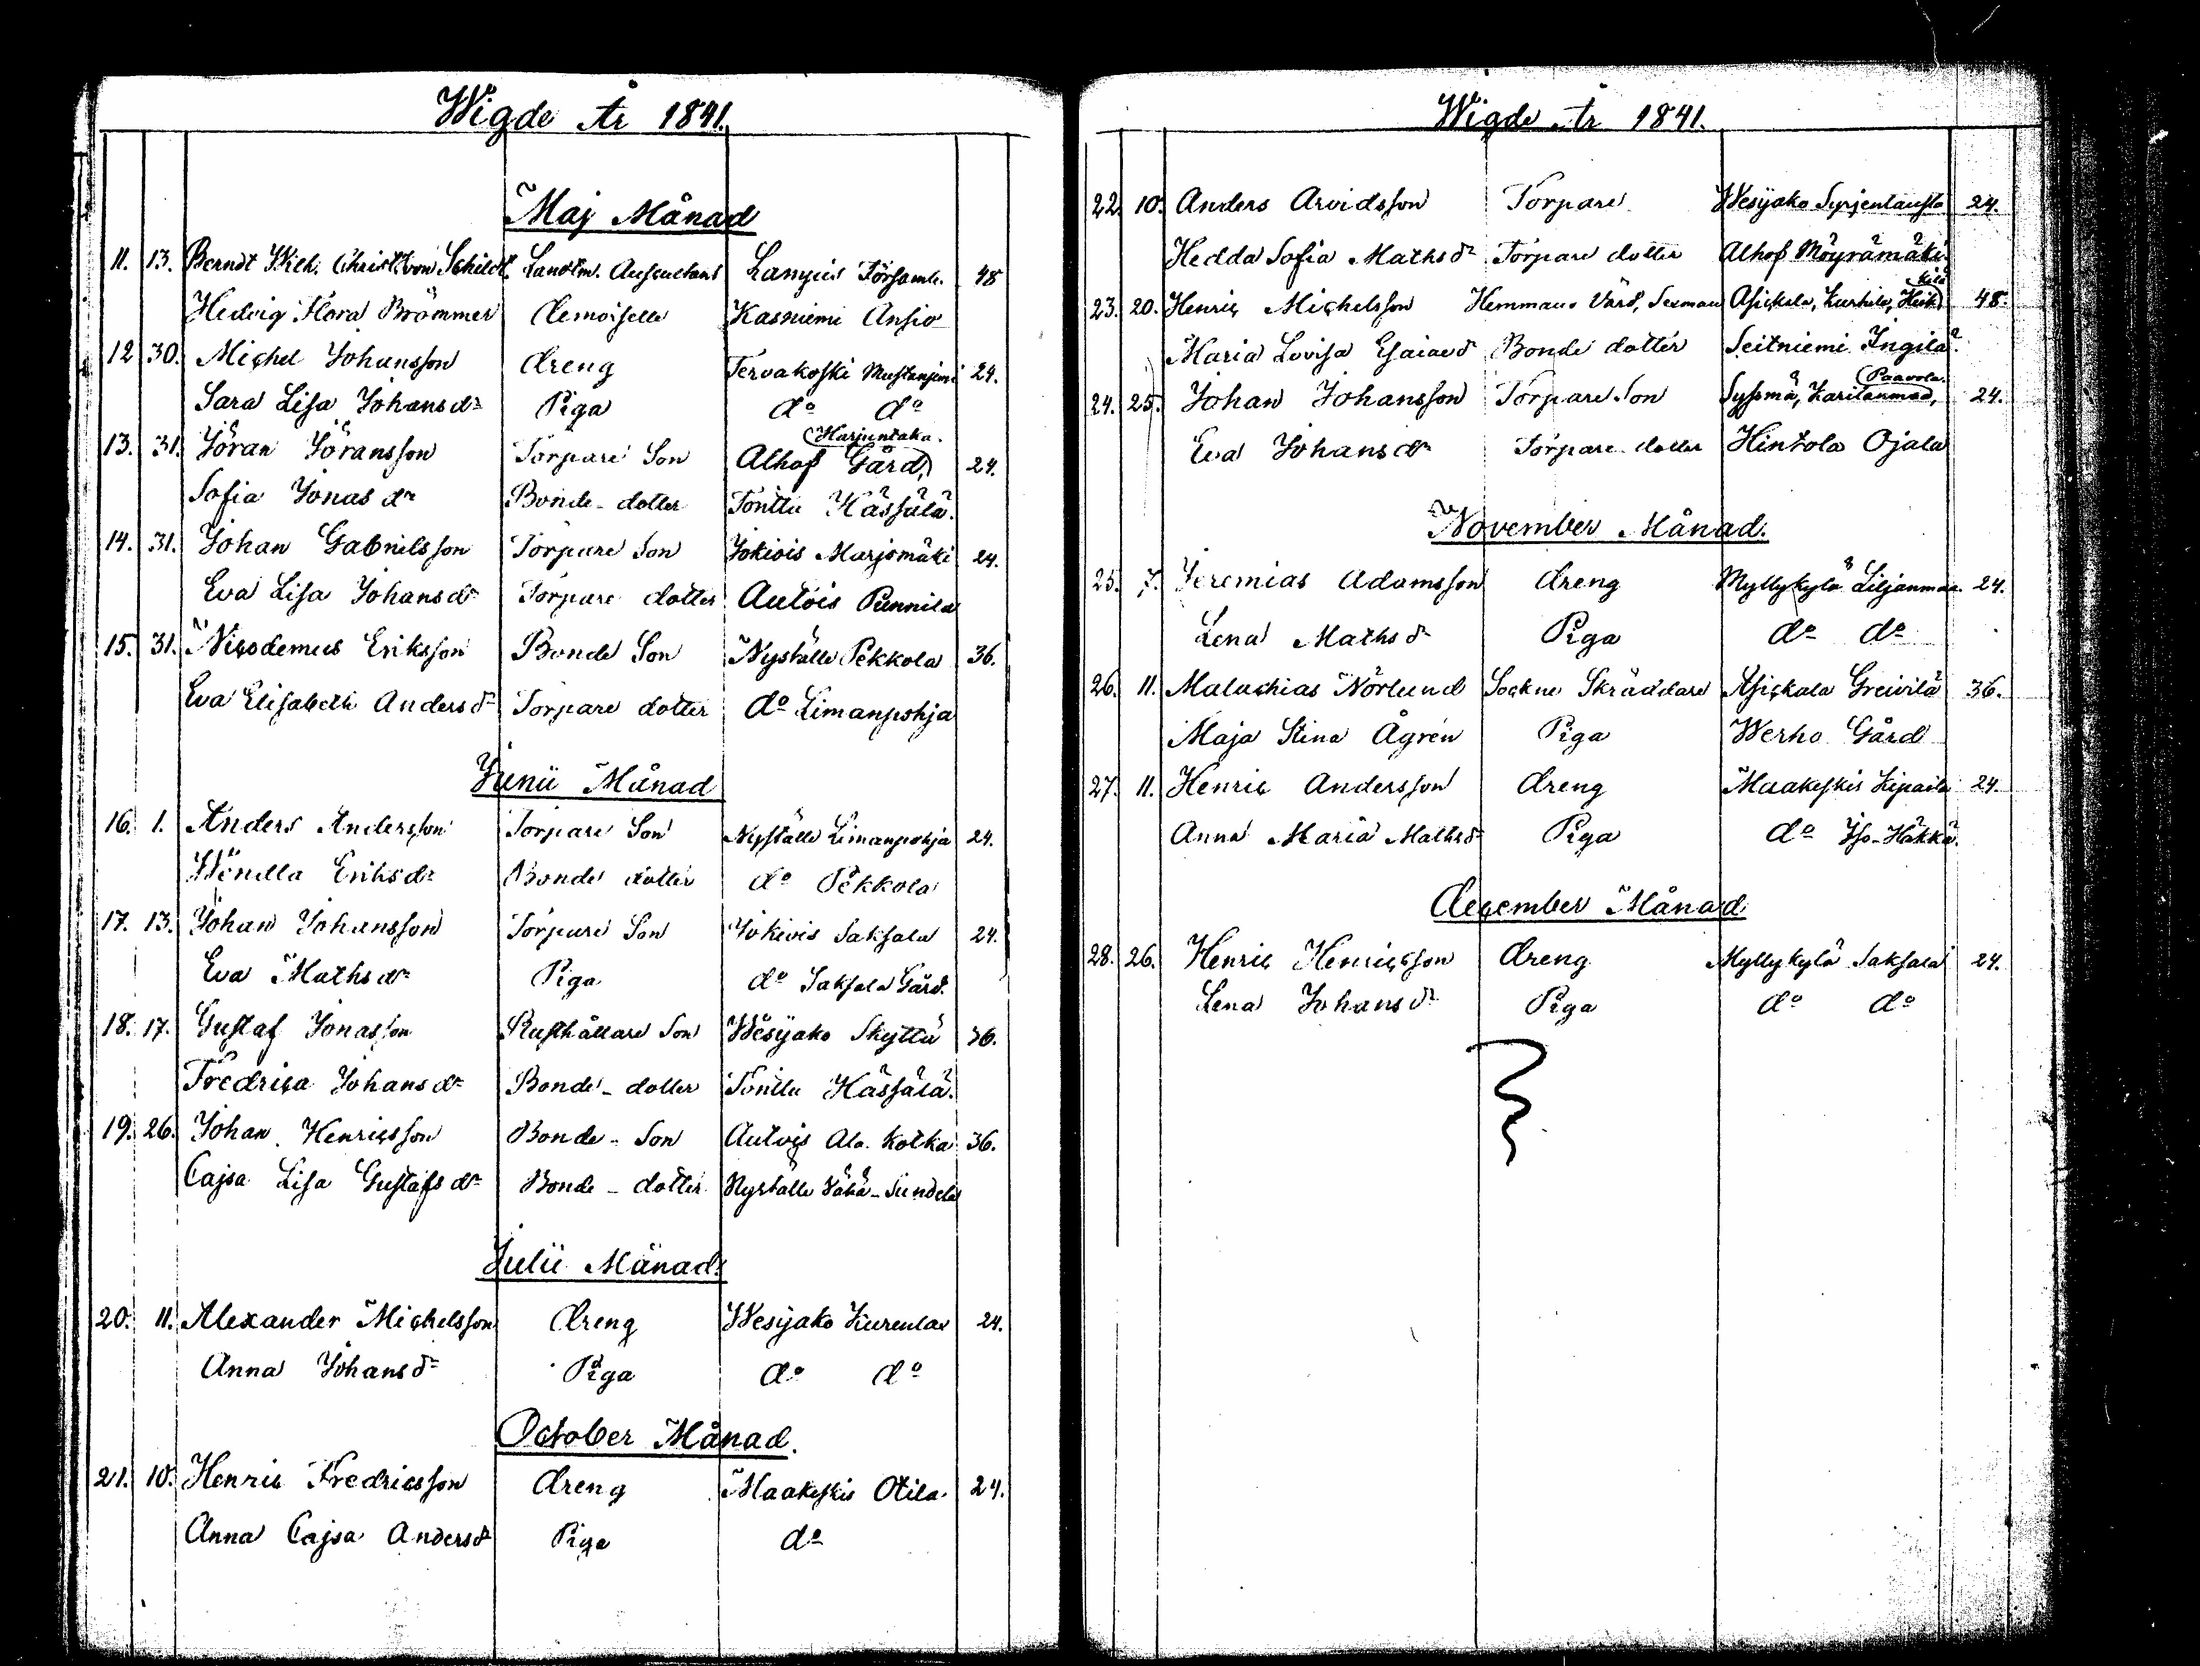 Wigde År 1841.
Maj Månad
11. 13. Berndt Wilh. Christ. von Schildt Landtm. Auscultant Lampis Församl. 48
Hedvig Flora Brömmer Demoiselle Kasniemi Ansio
12 30. Michel Johansson Dreng Tervakoski Mustanjemi 24.
Sara Lisa Johansdr Piga do do
Harjuntaka.
13. 31. Jöran Jöransson Torpare Son Alhof Gård, 24.
Sofia Jonasdr Bonde-dotter Tönttu Hässälä.
14. 31. Johan Gabrielsson Torpare Son Jokiois Marjomäki 24.
Eva Lisa Johansdr Torpare dotter Autois Pennila
15. 31. Nicodemus Eriksson Bonde Son Nyställe Pekkola 36.
Eva Elisabeth Andersdr Torpare dotter do Limanpohja
Junii Månad
16. 1. Anders Andersson Torpare Son Nyställe Limanpohja 24.
Wendla Eriksdr Bonde dotter do Pekkola
17. 13. Johan Johansson Torpare Son Jokiois Saksala 24.
Eva Mathsdr Piga do Saksala Gård.
18. 17. Gustaf Jonasson Rusthållare Son Wesijako Skyttä 36.
Fredrica Johansdr Bonde-dotter Tönttu Hässälä.
19. 26. Johan Henricsson Bonde-Son Autois Ala-Kotka 36.
Cajsa Lisa Gustafsdr Bonde-dotter Nyställe Vähä-Sundela
Julii Månad.
20. 11. Alexander Michelsson Dreng Wesijako Kurenlax 24.
Anna Johansdr Piga do do
October Månad.
21. 10. Henric Fredricsson Dreng Maakeskis Otila 24.
Anna Cajsa Andersdr Piga do
Wigde År 1841.
22. 10. Anders Arvidsson Torpare Wesijako Syrjentausta 24.
Hedda Sofia Mathsdr Torpare dotter Alhof Möyrämäki
kilä
23. 20. Henric Michelsson Hemmans Värd, Sexman Asickala, Kurhila, Heik 48.
Maria Lovisa Esaiaedr Bonde dotter Seitniemi Ingilä.
Paavola.
24. 25. Johan Johansson Torpare Son Syssmä, Karilanmaa, 24.
Eva Johansdr Torpare dotter Hintola Ojala
November Månad.
25. 7. Jeremias Adamsson Dreng Myllykylä Liljanmaa. 24.
Lena Mathsdr Piga do do
26. 11. Malachias Nörlund Sockne Skräddare Asickala Greivilä 36.
Maja Stina Ågrén Piga Werho Gård
27. 11. Henric Andersson Dreng Maakeskis Lipaila 24.
Anna Maria Mathsdr Piga do Iso-Häkkä.
December Månad
28. 26. Henric Henricsson Dreng Myllykylä Saksala 24.
Lena Johansdr Piga do do